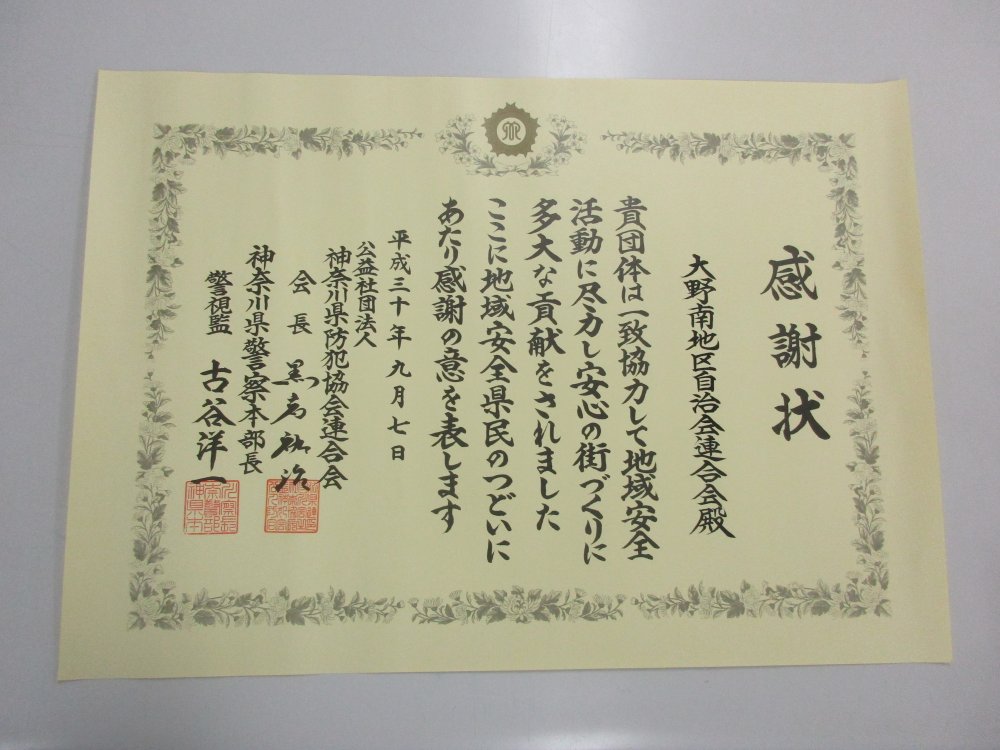 感謝状
大野南地区自治会連合会殿
貴団体は一致協力して地域安全
活動に尽力し安心の街づくりに
多大な貢献をされました
ここに地域安全県民のつどいに
あたり感謝の意を表します
平成三十年九月七日
公益社団法人
神奈川県防犯協会連合会
会長
神奈川県警察本部長
警視監 古谷洋一